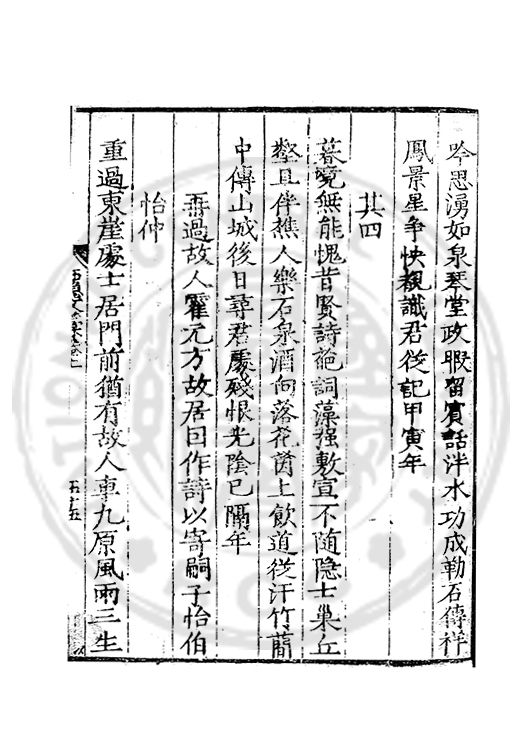 吟思湧如泉琴堂政暇留賓話泮水功成勒石傳祥
鳳景星争快覩識君從記甲寅年
其四
暮䆒無能愧昔賢詩葩詞藻强敷宣不随隐士巢丘
壑且伴樵人樂石泉酒向落花茵上飲道從汗竹蕳
中傳山城後日尋君處殘恨光陰已隔年
再過故人霍元方故居因作詩以寄嗣子怡伯
怡仲
重過東崖處士居門前猶有故人車九原風雨三生